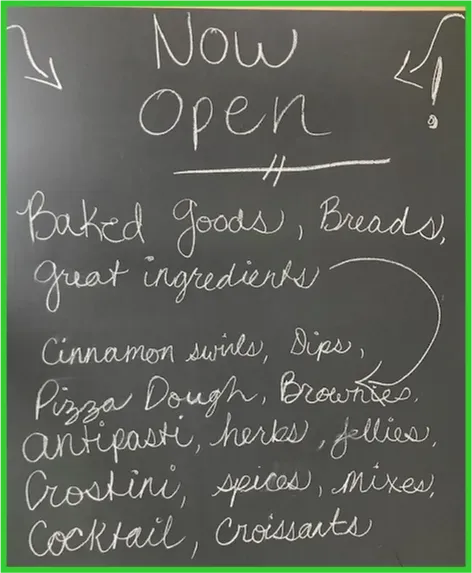 Now
Open !
Baked goods, Breads,
great ingredients
Cinnamon swirls, Dips,
Pizza Dough, Brownies,
antipasti, herbs, jellies,
Crostini, spices, mixes,
Cocktail, Croissants